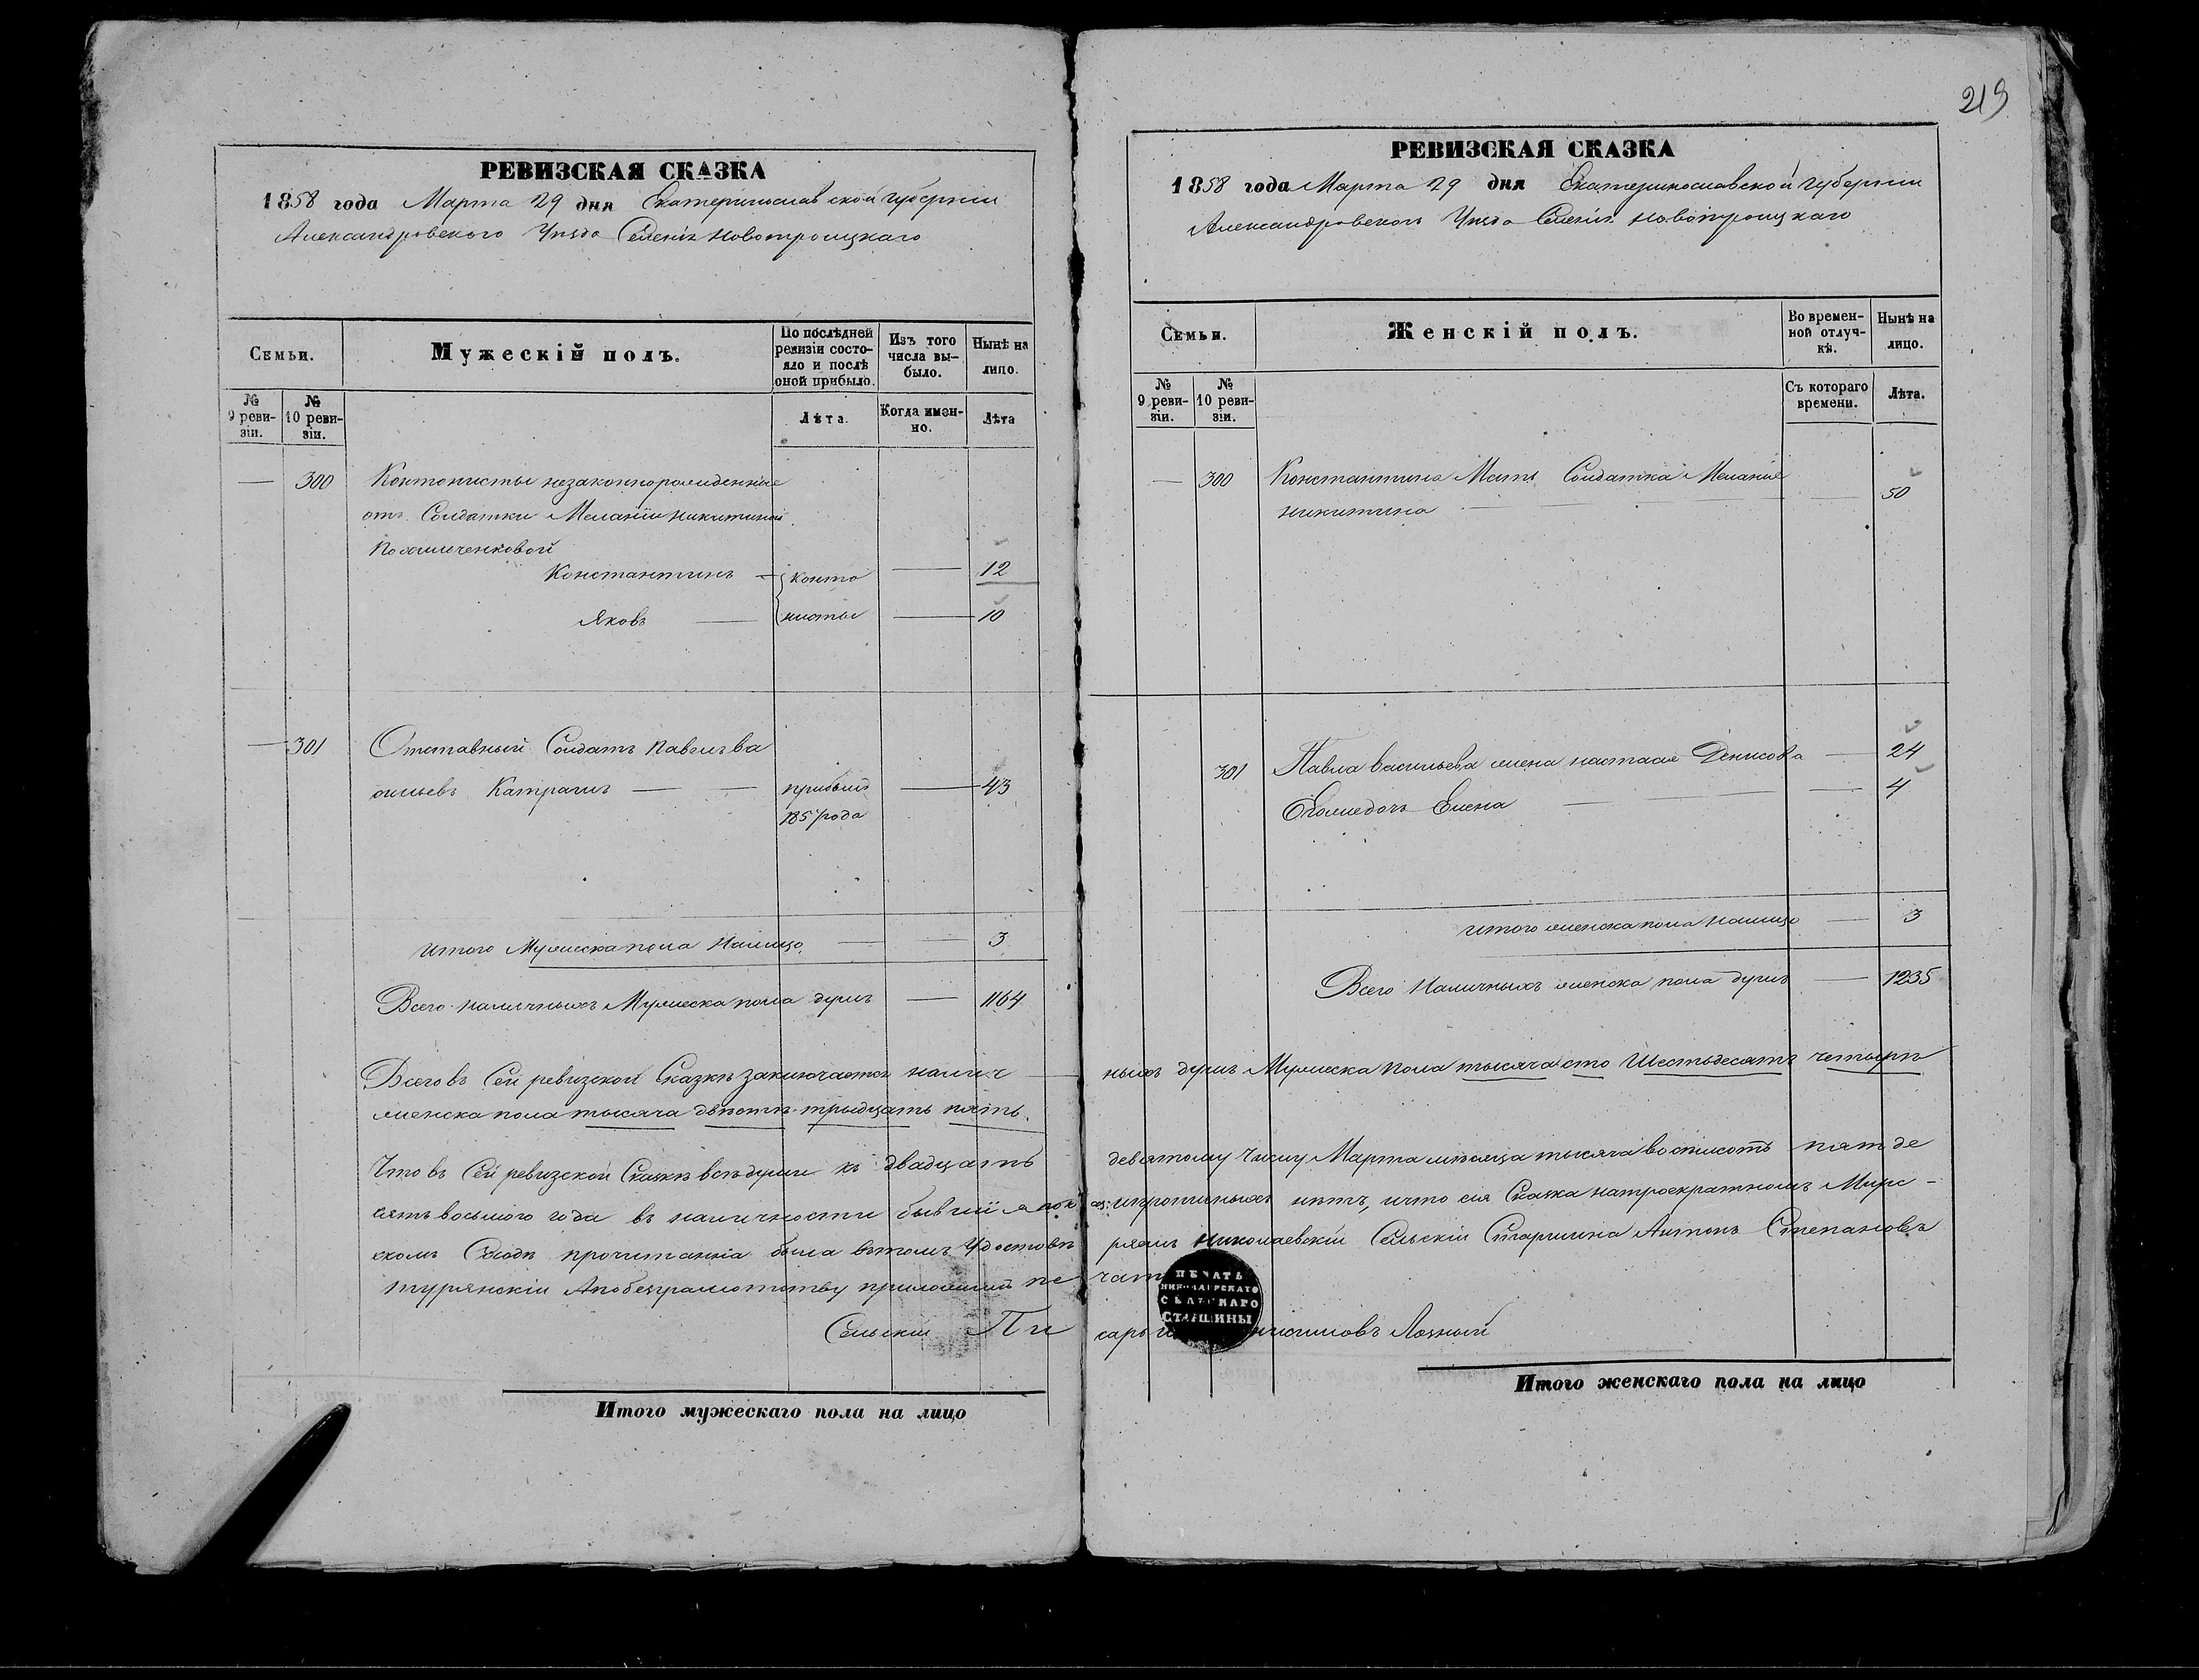 219
РЕВИЗСКАЯ СКАЗКА
1858 года Марта 29 дня Екатеринославской губернии
Александровского Уѣзда Селенія Новотроицкаго
Семьи.
Мужескій полъ.
По послѣдней ревизіи состояло и послѣ оной прибыло.
Изъ того числа выбыло.
Нынѣ на лицо.
№ 9 ревизіи.
№ 10 ревизіи.
Лѣта.
Когда именно.
Лѣта
— 300 Контонисты незаконнорожденные
отъ Солдатки Меланіи Никитиной
Константинъ — конто — 12
Яковъ — нисты — 10
— 301 Отставный Солдатъ Павелъ Ва
сильевъ Катрагиъ — — прибылъ — 43
185 года
итого Мужеска пола Налицо — — 3
Всего наличныхъ Мужеска пола душъ — 1164
Всего въ Сей ревизской Сказкѣ заключается налич —
женска пола тысяча двѣсти тридцать пять.
Что въ Сей ревизской Сказкѣ всѣ души къ двадцать
сятъ восьмого года въ наличности бывшія
скомъ Сходѣ прочитанна была вътомъ Удостовѣ
турянскій Апобезграмотству приложилъ пе
Сельскій Пи
Итого мужескаго пола на лицо
РЕВИЗСКАЯ СКАЗКА
1858 года Марта 29 дня Екатеринославской губерніи
Александровского Уѣзда Селенія Новотроицкаго
Семьи.
Женскій полъ.
Во временной отлучкѣ.
Нынѣ на лицо.
№ 9 ревизіи.
№ 10 ревизіи.
Съ котораго времени.
Лѣта.
— 300 Константина Мать Солдатка Меланія — 50
Никитина
301 Павла Васильева жена Настасія Денисова — 24
Егожедочь Елена — 4
итого женска пола Налицо — 3
Всего Наличныхъ женска пола душъ — 1235
ныхъ душъ Мужеска Пола тысяча сто Шестьдесятъ четыри
девятому числу Марта мѣсяца тысяча восимсотъ пятде
ипрописныхъ нѣтъ, ичто сія Сказка натроекратномъ Мирс -
ряемъ Николаевскій Сельскій Старшина Антонъ Степановъ
чать
ПЕЧАТЬ
НИКОЛАЕВСКАГО
СЕЛЬСКАГО
СТАРШИНЫ
сарь Лозный
Итого женскаго пола на лицо